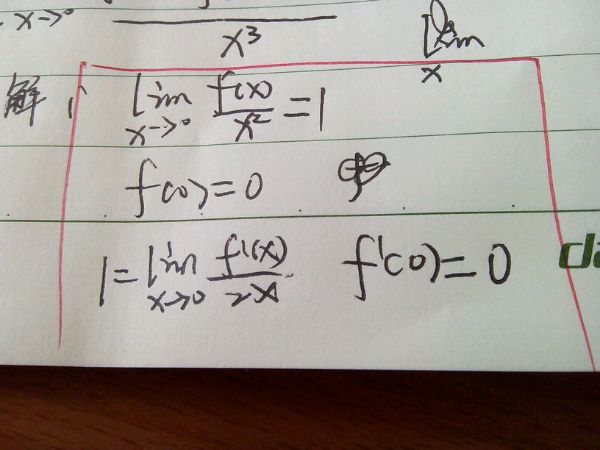 x→0 x³ lim x
解 1) lim x→0 f(x)/x² = 1
f(0) = 0
1 = lim x→0 f'(x)/2x f'(0) = 0